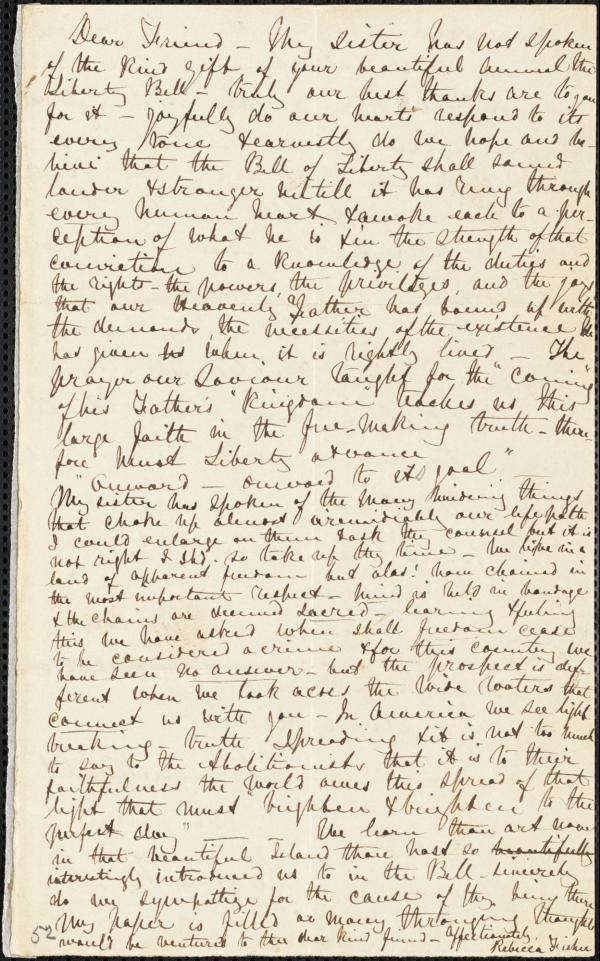 Dear Friend - My sister has not spoken
of the kind gift of your beautiful annual the
Liberty Bell - truly our best thanks are to you
for it - joyfully do our hearts respond to its
every tone & earnestly do we hope and be-
lieve that the Bell of Liberty shall sound
louder & stronger untill it has rung through
every human heart & awoke each to a per-
ception of what he is & in the strength of that
conviction to a knowledge of the duties and
the rights - the powers, the privileges, and the joys
that our Heavenly Father has bound up with
the demands, the necessities of the existence He
has given us when it is rightly lived - The
prayer our Saviour taught for the "coming"
of his Father's "Kingdom" teaches us this
large faith in the free-making truth - there-
fore must Liberty advance
"Onward - onward to its goal" -
My sister has spoken of the many hindering things
that choke up almost irremediably our life path
I could enlarge on them & ask thy counsel but it is
not right I shd. so take up thy time - We live in a
land of apparent freedom but alas! how chained in
the most important respect - mind is held in bondage
& the chains are deemed sacred - learning & feeling
this we have asked when shall freedom cease
to be considered a crime & for this country we
have seen no answer - but the prospect is dif-
ferent when we look across the wide waters that
connect us with you - In America we see light
breaking - truth spreading & it is not too much
to say to the Abolitionists that it is to their
faithfulness the world owes this spread of that
light that must "brighten & brighten to the
perfect day" - We learn thou art now
in that beautiful Island thou hast so beautifully
interestingly introduced us to in the Bell - sincerely
do we sympathize for the cause of thy being there
My paper is filled or many thronging thoughts
would be ventured to thee dear kind friend - affectionately
Rebecca Fisher
52